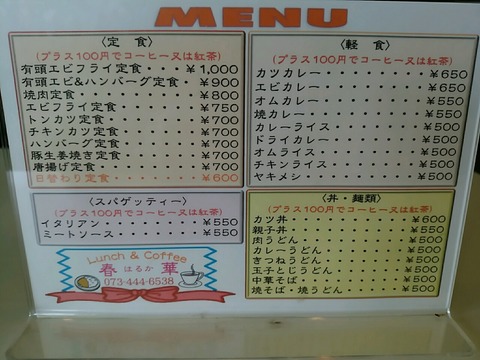 MENU
〈定 食〉
(プラス100円でコーヒー又は紅茶)
有頭エビフライ定食・・¥1,000
有頭エビ&ハンバーグ定食・¥900
焼肉定食・・・・・・・・¥800
エビフライ定食・・・・・・¥750
トンカツ定食・・・・・・・¥700
チキンカツ定食・・・・・・¥700
ハンバーグ定食・・・・・・¥700
豚生姜焼き定食・・・・・・¥700
唐揚げ定食・・・・・・・・¥700
日替わり定食・・・・・・・¥600
〈スパゲッティー〉
(プラス100円でコーヒー又は紅茶)
イタリアン・・・・・・・・¥550
ミートソース・・・・・・・¥550
Lunch & Coffee
春 はるか 華
073-444-6538
〈軽 食〉
(プラス100円でコーヒー又は紅茶)
カツカレー・・・・・・・・¥650
エビカレー・・・・・・・・¥650
オムカレー・・・・・・・・¥550
焼カレー・・・・・・・・・¥550
カレーライス・・・・・・・¥500
ドライカレー・・・・・・・¥500
オムライス・・・・・・・・¥500
チキンライス・・・・・・・¥500
ヤキメシ・・・・・・・・・¥500
〈丼・麺類〉
(プラス100円でコーヒー又は紅茶)
カツ丼・・・・・・・・・・¥600
親子丼・・・・・・・・・・¥550
肉うどん・・・・・・・・・¥500
カレーうどん・・・・・・・¥500
きつねうどん・・・・・・・¥500
玉子とじうどん・・・・・・¥500
中華そば・・・・・・・・・¥500
焼そば・焼うどん・・・・・¥500